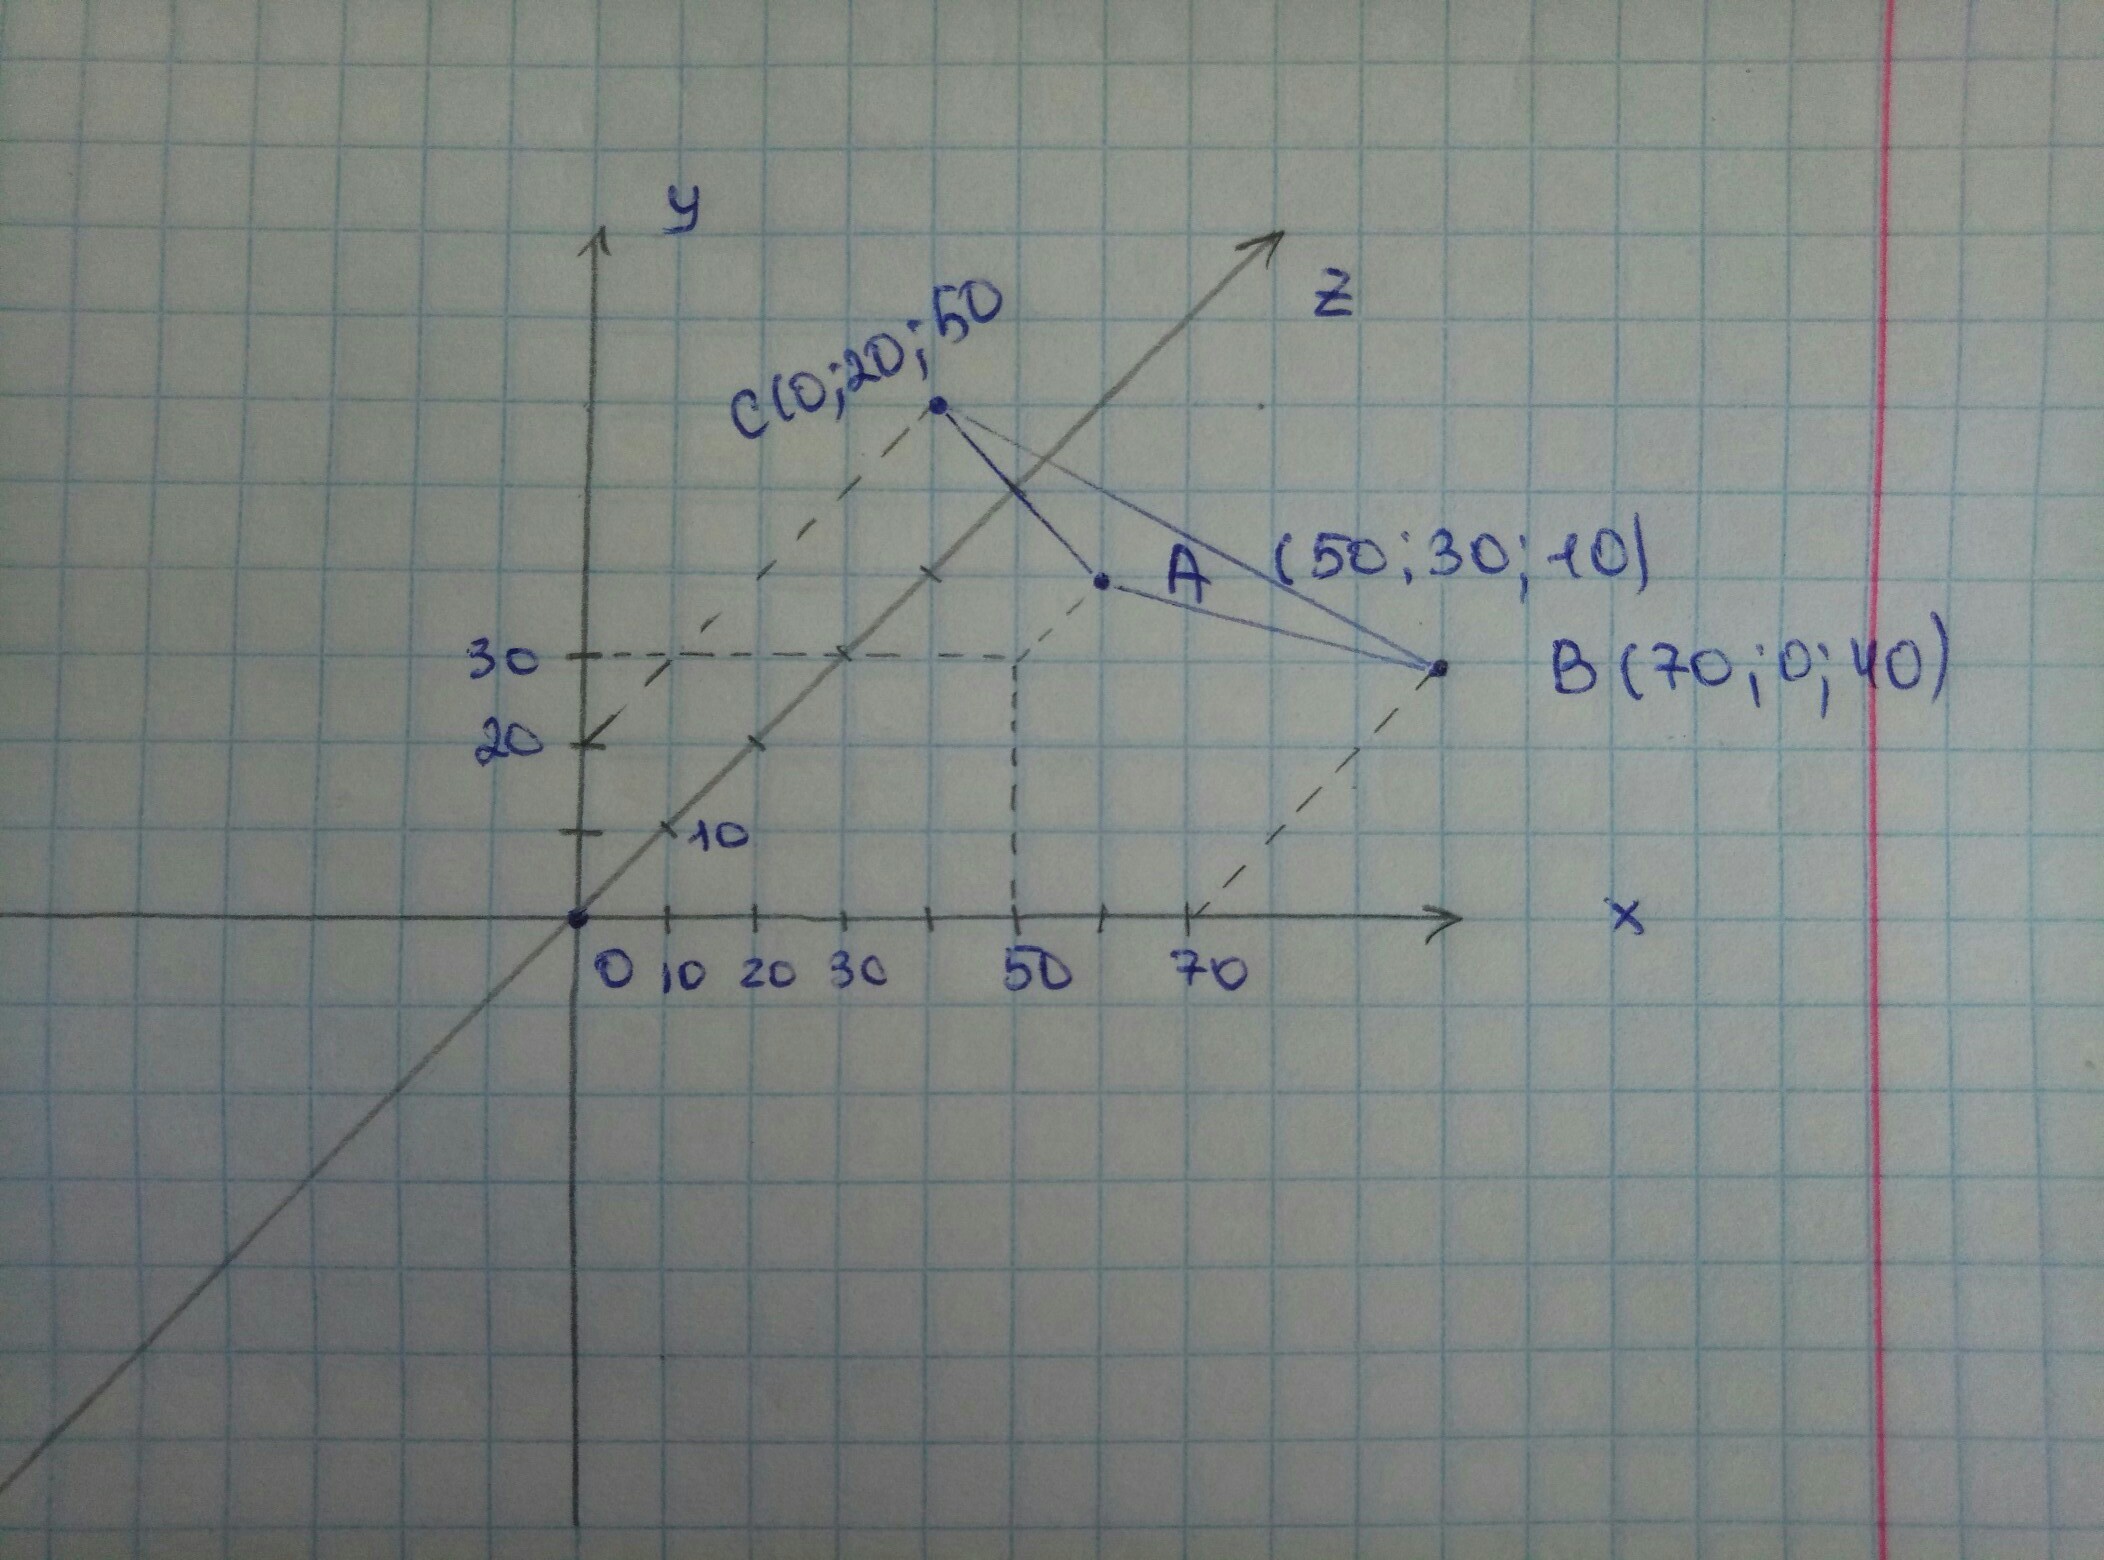 y
z
C(0;20;50
A (50;30;10)
B(70;0;40)
30
20
10
x
0 10 20 30 50 70